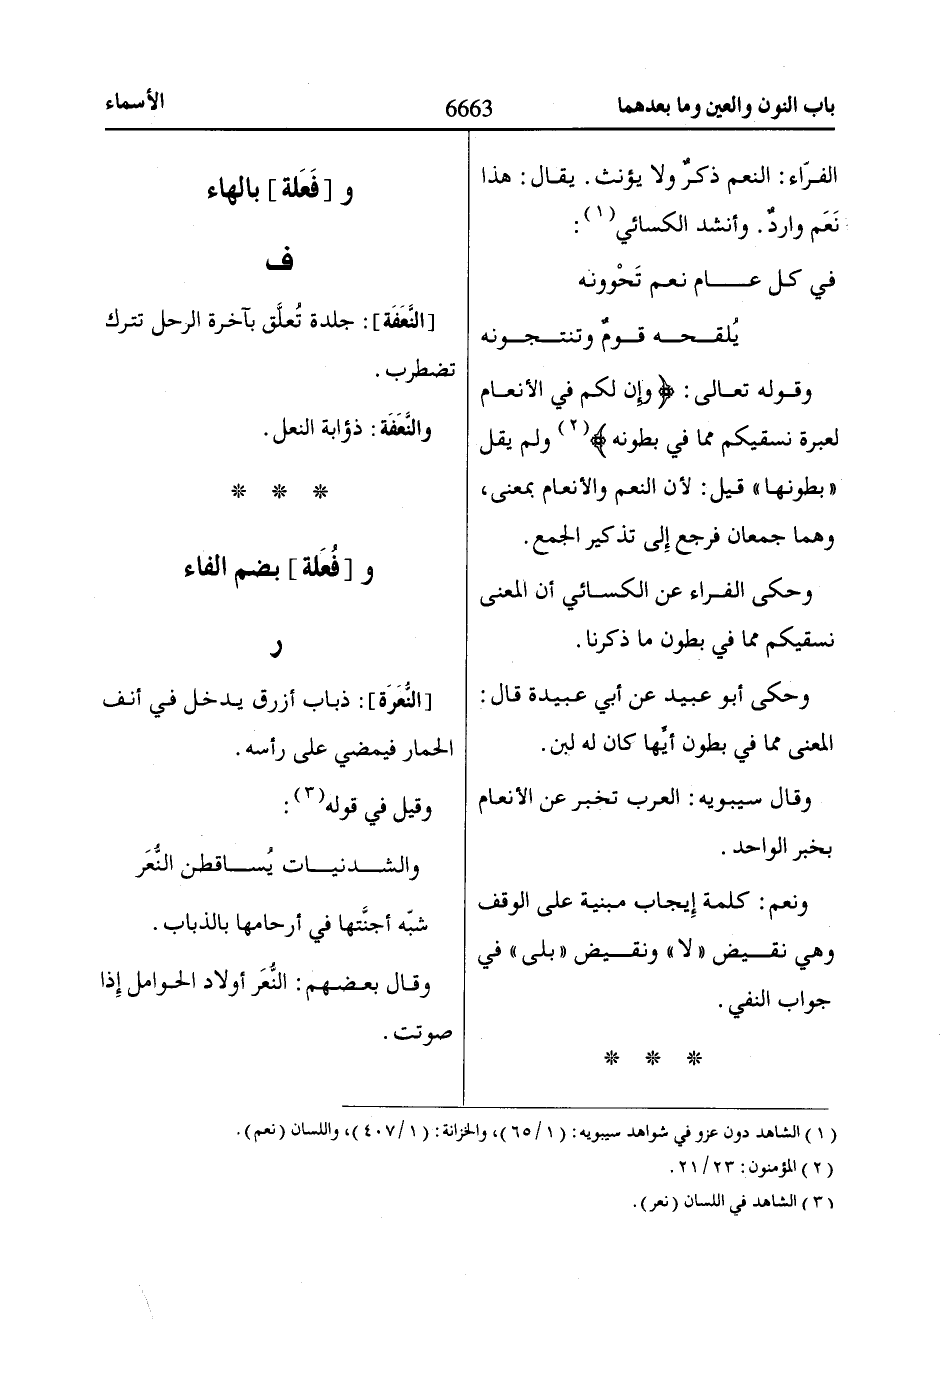 باب النون والعين وما بعدهما
6663
الأسماء
الفرّاء: النعم ذكرٌ ولا يؤنث. يقال: هذا
نَعَم واردٌ. وأنشد الكسائي(١):
في كل عـــام نعـم تَحْوونه
يُلقـحـه قـومٌ وتنتـجـونه
وقـوله تعـالى: ﴿وإن لكم في الأنعـام
لعبرة نسقيكم مما في بطونه﴾(٢) ولم يقل
«بطونـها» قـيل: لأن النعـم والأنعـام بمعنى،
وهما جمعان فرجع إلى تذكير الجمع.
وحكى الفـراء عن الكسـائي أن المعنى
نسقيكم مما في بطون ما ذكرنا.
وحكى أبو عبيد عن أبي عبيدة قال:
المعنى مما في بطون أيّها كان له لبن.
وقال سيبويه: العرب تخبر عن الأنعام
بخبر الواحد.
ونعم: كلمة إيجاب مبنية على الوقف
وهي نقـيض «لا» ونقـيض «بلى» في
جواب النفي.
* * *
و [فَعَلة] بالهاء
ف
[النَّعَفَة]: جلدة تُعلَّق بآخرة الرحل تترك
تضطرب.
والنَّعَفَة: ذؤابة النعل.
* * *
و [فُعَلة] بضم الفاء
ر
[النُّعَرَة]: ذباب أزرق يـدخـل فـي أنـف
الحمار فيمضي على رأسه.
وقيل في قوله(٣):
والشـدنيـات يُسـاقطـن النُّعَر
شبّه أجنَّتها في أرحامها بالذباب.
وقـال بعـضـهم: النُّعَر أولاد الحـوامل إذا
صوتت.
(١) الشاهد دون عزو في شواهد سيبويه: (٦٥/١)، والخزانة: (٤٠٧/١)، واللسان (نعم).
(٢) المؤمنون: ٢١/٢٣.
(٣) الشاهد في اللسان (نعر).